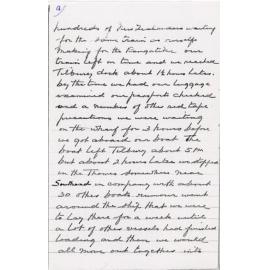 9/
hundreds of New Zealanders waiting
for the same train as ourselves
making for the Rangatike our
train left on time and we reached
Tilbury dock about 1½ hours later.
by the time we had our luggage
examined our passports checked
and a number of other red tape
precautions we were waiting
on the wharf for 3 hours before
we got aboard our boat the
boat left Tilbury about 5 PM
but about 2 hours later we stopped
in the Thames somewhere near
Southend in company with about
30 other boats rumours went
around the ship that we were
to lay there for a week until
a lot of other vessels had finished
loading and then we would
all move out together into